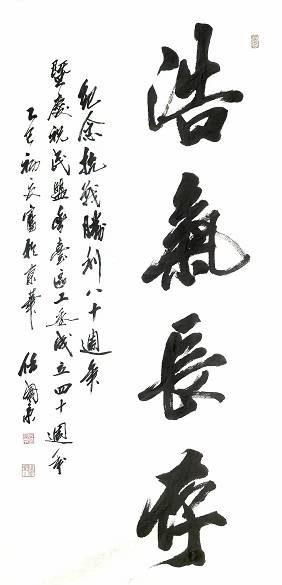 浩氣長存
紀念抗戰勝利八十週年
暨慶祝民盟豐臺區工委成立四十週年
乙巳初夏書於京華